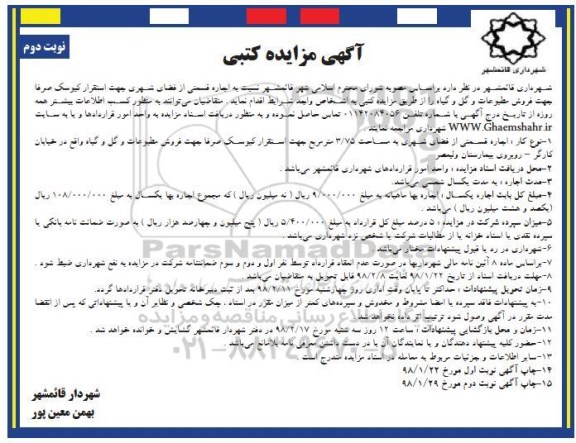 نوبت دوم
آگهی مزایده کتبی
شهرداری قائمشهر
شهرداری قائمشهر در نظر دارد براساس مصوبه شورای محترم اسلامی شهر قائمشهر نسبت به اجاره قسمتی از فضای شهری جهت استقرار کیوسک صرفا
جهت فروش مطبوعات و گل و گیاه را از طریق مزایده کتبی به اشخاص واجد شرایط اقدام نماید . متقاضیان می‌توانند به منظور کسب اطلاعات بیشتر همه
روزه از تاریخ درج آگهی با شماره تلفنی ۰۱۱۴۲۰۸۴۰۵۶ تماس حاصل نموده و به منظور دریافت اسناد مزایده به واحد امور قراردادها و یا به سایت
WWW.Ghaemshahr.ir شهرداری مراجعه نمایند .
۱-نوع کار : اجاره قسمتی از فضای شهری به مساحت ۳/۷۵ مترمربع جهت استقرار کیوسک صرفا جهت فروش مطبوعات و گل و گیاه واقع در خیابان
کارگر – روبروی بیمارستان ولیعصر
۲-محل دریافت اسناد مزایده : واحد امور قراردادهای شهرداری قائمشهر می‌باشد .
۳-مدت اجاره : به مدت یکسال شمسی می‌باشد .
۴-مبلغ کل بابت اجاره یکسال : اجاره بها ماهیانه به مبلغ ۹/۰۰۰/۰۰۰ ریال ( نه میلیون ریال ) که مجموع اجاره بها یکسال به مبلغ ۱۰۸/۰۰۰/۰۰۰ ریال
(یکصد و هشت میلیون ریال ) می‌باشد .
۵-میزان سپرده شرکت در مزایده : ۵ درصد مبلغ کل قرارداد به مبلغ ۵/۴۰۰/۰۰۰ ریال ( پنج میلیون و چهارصد هزار ریال ) به صورت ضمانت نامه بانکی یا
سپرده نقدی یا اسناد خزانه یا از مطالبات شرکت یا شخص نزد شهرداری می‌باشد .
۶-شهرداری در رد یا قبول پیشنهادات مختار می‌باشد .
۷-براساس ماده ۸ آئین نامه مالی شهرداریها در صورت عدم انعقاد قرارداد توسط نفر اول و دوم و سوم ضمانتنامه شرکت در مزایده به نفع شهرداری ضبط شود .
۸-مهلت دریافت اسناد از تاریخ ۹۸/۱/۲۲ لغایت ۹۸/۲/۸ قابل تحویل به متقاضیان می‌باشد .
۹-زمان تحویل پیشنهادات : حداکثر تا پایان وقت اداری روز چهارشنبه مورخ ۹۸/۲/۱۱ بعد از ثبت دبیرخانه تحویل دفتر قراردادها گردد.
۱۰-به پیشنهادات فاقد سپرده یا امضا مشروط و مخدوش و سپرده‌های کمتر از میزان مقرر در اسناد ، چک شخصی و نظایر آن و یا پیشنهاداتی که پس از انقضا
مدت مقرر در آگهی وصول شود ترتیب اثر داده نخواهد شد.
۱۱-زمان و محل بازگشایی پیشنهادات : ساعت ۱۲ روز سه شنبه مورخ ۹۸/۲/۱۷ در دفتر شهردار قائمشهر گشایش و خوانده خواهد شد .
۱۲-حضور کلیه پیشنهاد دهندگان و یا نمایندگان آن با در دست داشتن معرفی نامه بلامانع می‌باشد .
۱۳-سایر اطلاعات و جزئیات مربوط به معامله در اسناد مزایده مندرج است .
۱۴-چاپ آگهی نوبت اول مورخ ۹۸/۱/۲۲
۱۵-چاپ آگهی نوبت دوم مورخ ۹۸/۱/۲۹
شهردار قائمشهر
بهمن معین پور
ParsNamadData
۰۲۱-۸۸۳۴۹۶۷۰-۵